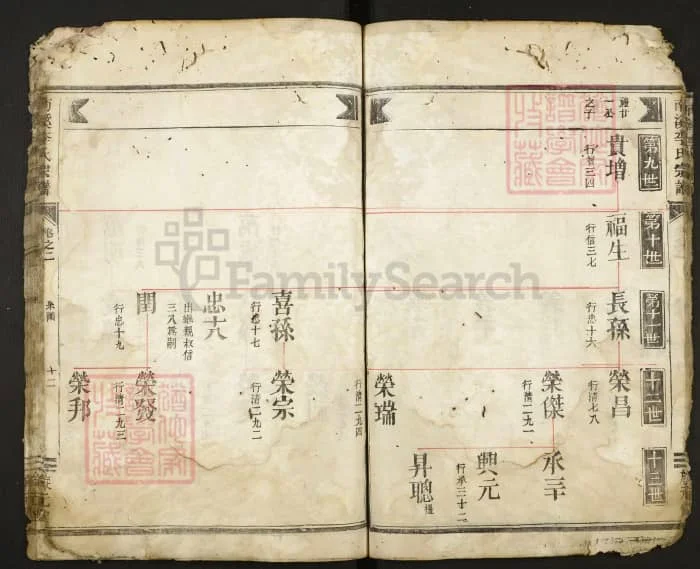 第九世
第十世
第十一世
十二世
十三世
之子
貴增
行智三四
福生
行信三七
長孫
行忠十六
榮昌
行清七八
榮傑
行清二九一
承三
興元
行承三十二
昇聰
榮瑞
行清二九四
喜孫
行忠十七
榮宗
行清二九二
忠六
出繼親叔信
三八爲嗣
閏
行忠十九
行清二九三
榮邦
李氏宗譜
卷之二
十二
FamilySearch